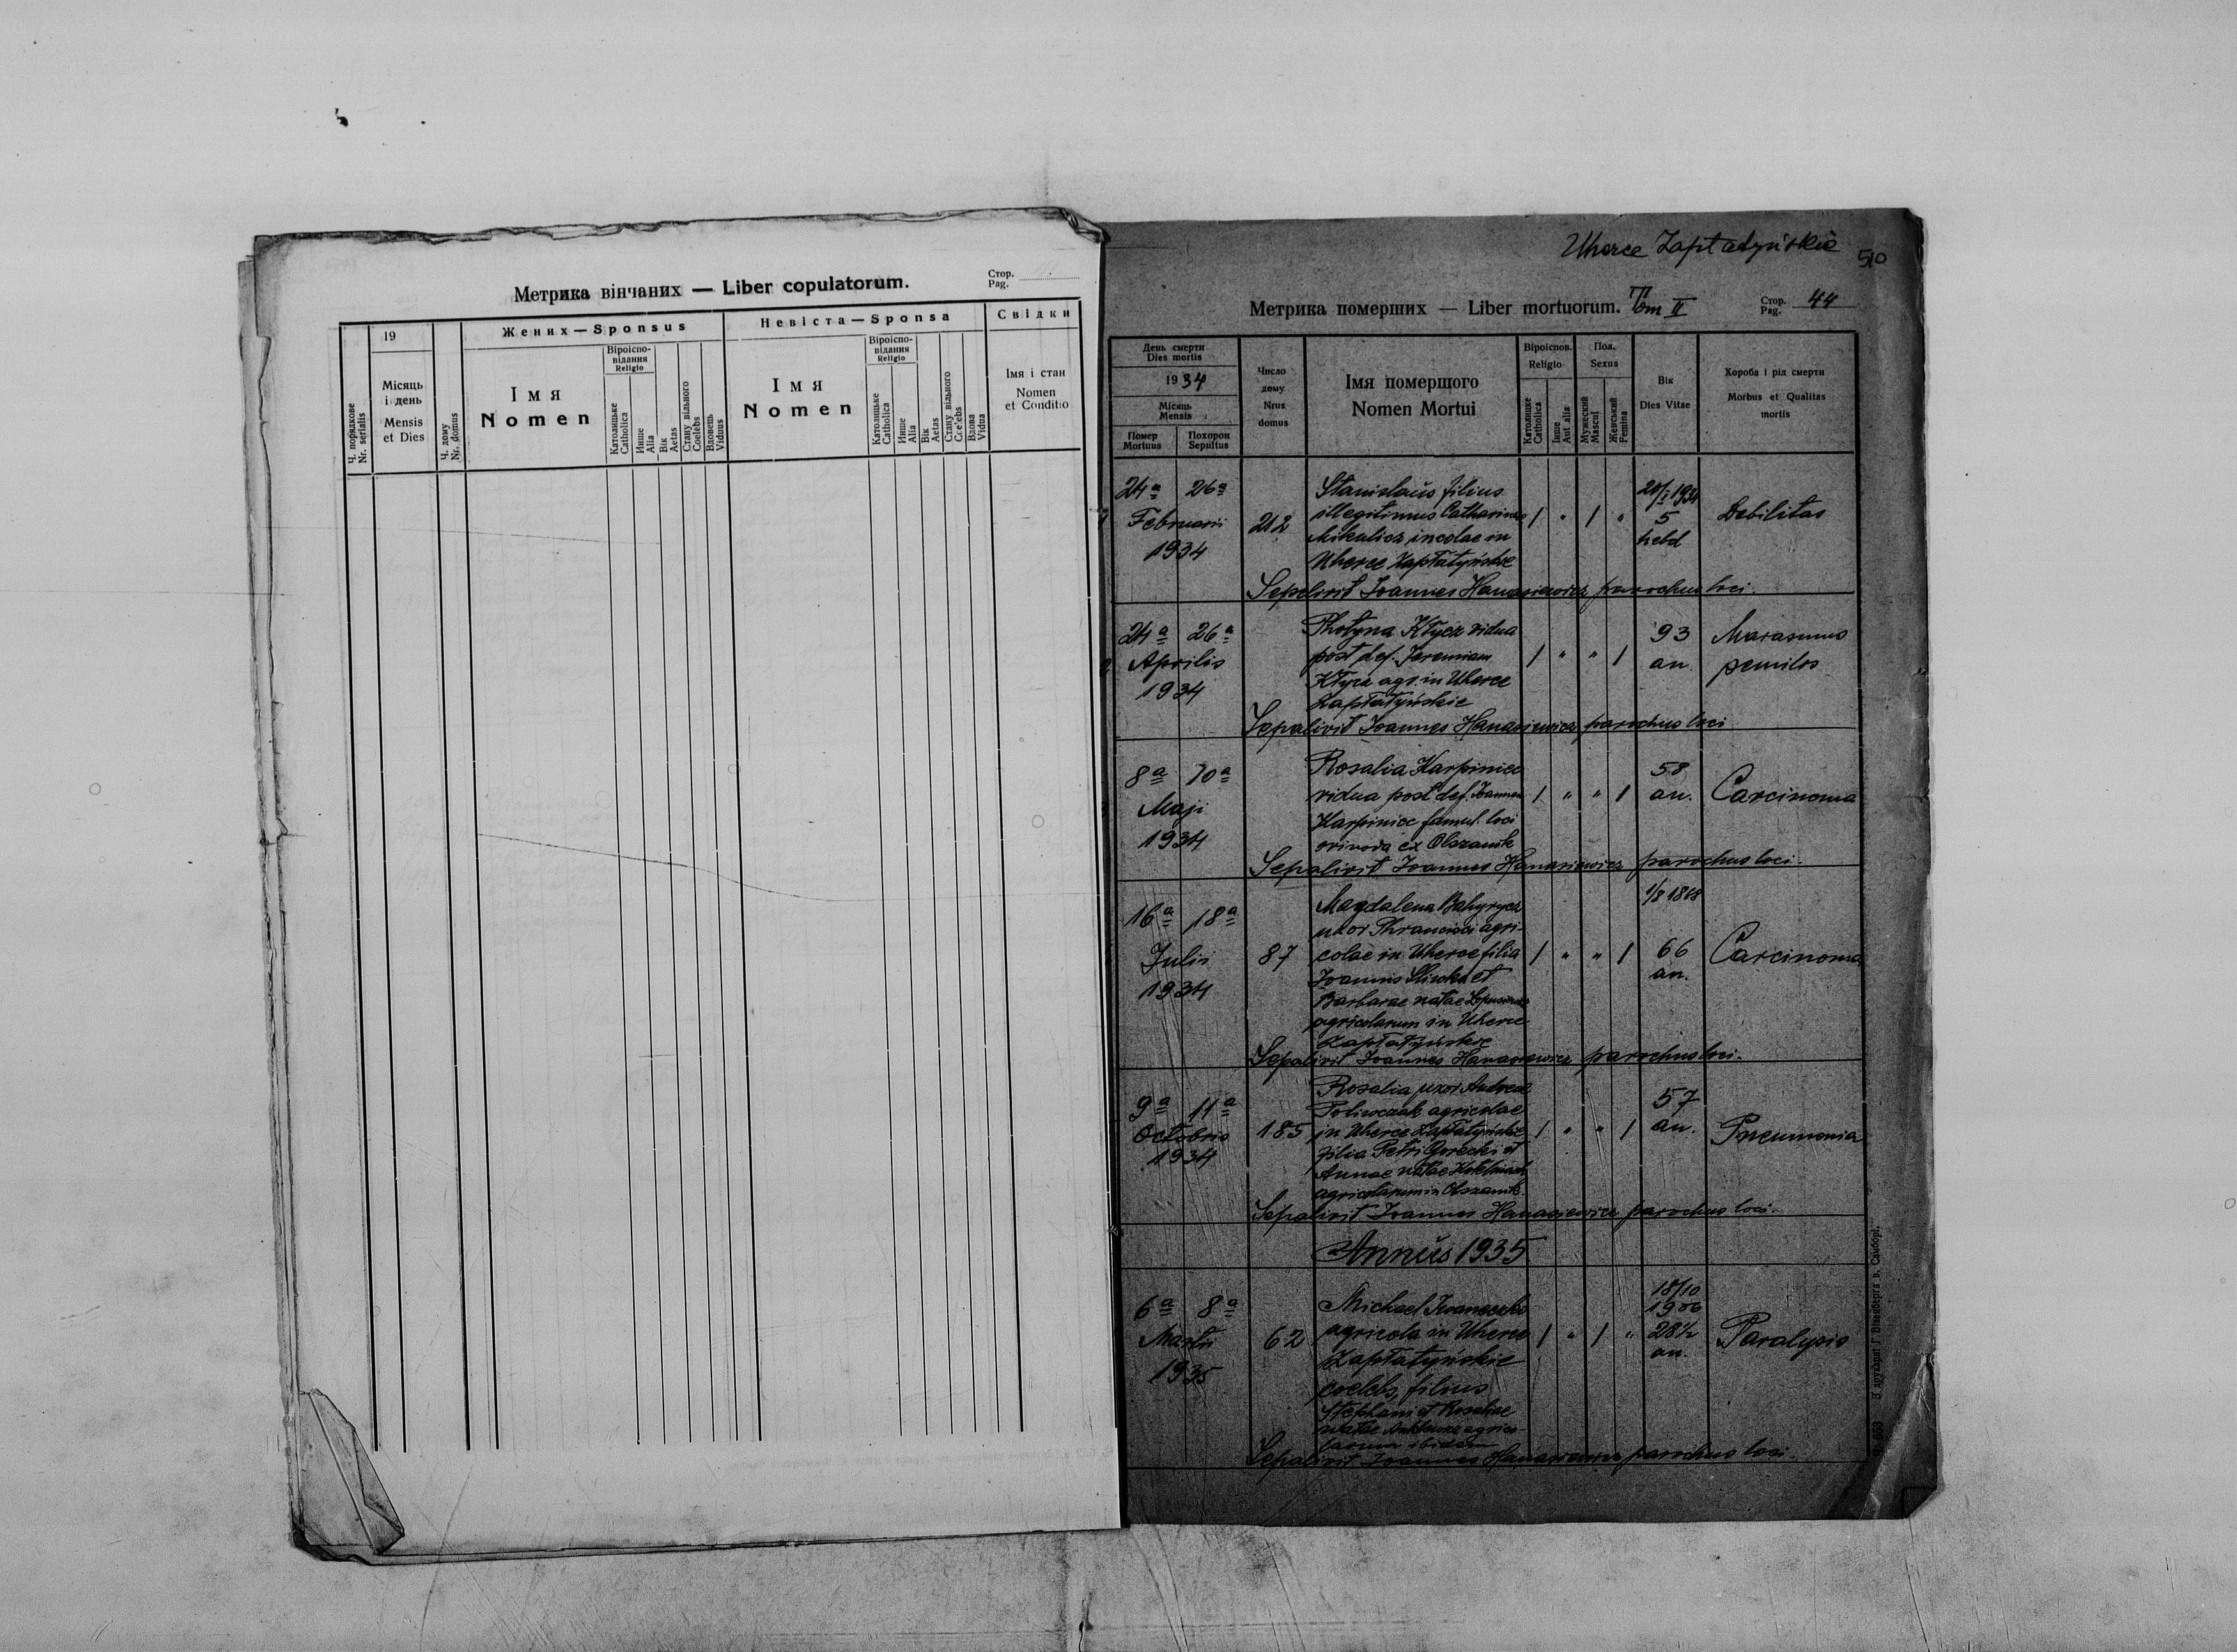 Метрика вінчаних — Liber copulatorum.
Стор.
Pag.
Ч. порядкове
Nr. serialis
19
Місяць
і день
Mensis
et Dies
Ч. дому
Nr. domus
Жених — Sponsus
Імя
Nomen
Віроіспо-
відання
Religio
Католицьке
Catholica
Инше
Alia
Вік
Aetas
Стану вільного
Coelebs
Вдовець
Viduus
Невіста — Sponsa
Імя
Nomen
Віроіспо-
відання
Religio
Католицьке
Catholica
Инше
Alia
Вік
Aetas
Стану вільного
Coe'ebs
Вдова
Vidua
Свідки
Імя і стан
Nomen
et Conditio
Uherce Zapłatyńskie
510
Метрика померших — Liber mortuorum. Tom II
Стор.
Pag. 44
День смерти
Dies mortis
1934
Місяць
Mensis
Помер
Mortuus
Похорон
Sepultus
Число
дому
Nrus
domus
Імя помершого
Nomen Mortui
Віроіспов.
Religio
Католицке
Catholica
Інше
Aut alia
Пол.
Sexus
Мужеский
Mascul
Женський
Femina
Вік
Dies Vitae
Хороба і рід смерти
Morbus et Qualitas
mortis
24a 26a
Februarii
1934
212
Stanislaus filius
illegitimus Catharinae
Mikulicz incolae in
Uherce Zapłatyńskie
1 " 1 "
20/I 1934
5
hebd
Debilitas
Sepelivit Joannes Hanasiewicz parochus loci.
24a 26a
Aprilis
1934
Photyna Kłycz vidua
post def. Jeremiam
Kłycz agr. in Uherce
Zapłatyńskie
1 " " 1
93
an.
Marasmus
senilis
Sepelivit Joannes Hanasiewicz parochus loci
8a 10a
Maji
1934
Rosalia Karpiniec
vidua post def. Joannem
Karpiniec famul. loci
oriunda ex Olszanik
1 " " 1
58
an.
Carcinoma
Sepelivit Joannes Hanasiewicz parochus loci.
16a 18a
Julii
1934
87
Magdalena Bahyrycz
uxor Phrancisci agri-
colae in Uherce filia
Joannis Sliwka et
Barbarae natae
agricolarum in Uherce
Zapłatyńskie
1 " " 1
1/8 1868
66
an.
Carcinoma
Sepelivit Joannes Hanasiewicz parochus loci.
9a 11a
Octobris
1934
185
Rosalia uxor Andreae
Poliwczak agricolae
in Uherce Zapłatyńskie
filia Petri Gorecki et
Annae natae
agricolarum in Olszanik.
1 " " 1
57
an.
Pneumonia
Sepelivit Joannes Hanasiewicz parochus loci.
Annus 1935
6a 8a
Martii
1935
62
Michael Iwaneczko
agricola in Uherce
Zapłatyńskie
coelebs, filius
Stephani et Rosaliae
natae agrico-
larum ibidem
1 " 1 "
18/10
1906
28½
an.
Paralysis
Sepelivit Joannes Hanasiewicz parochus loci.